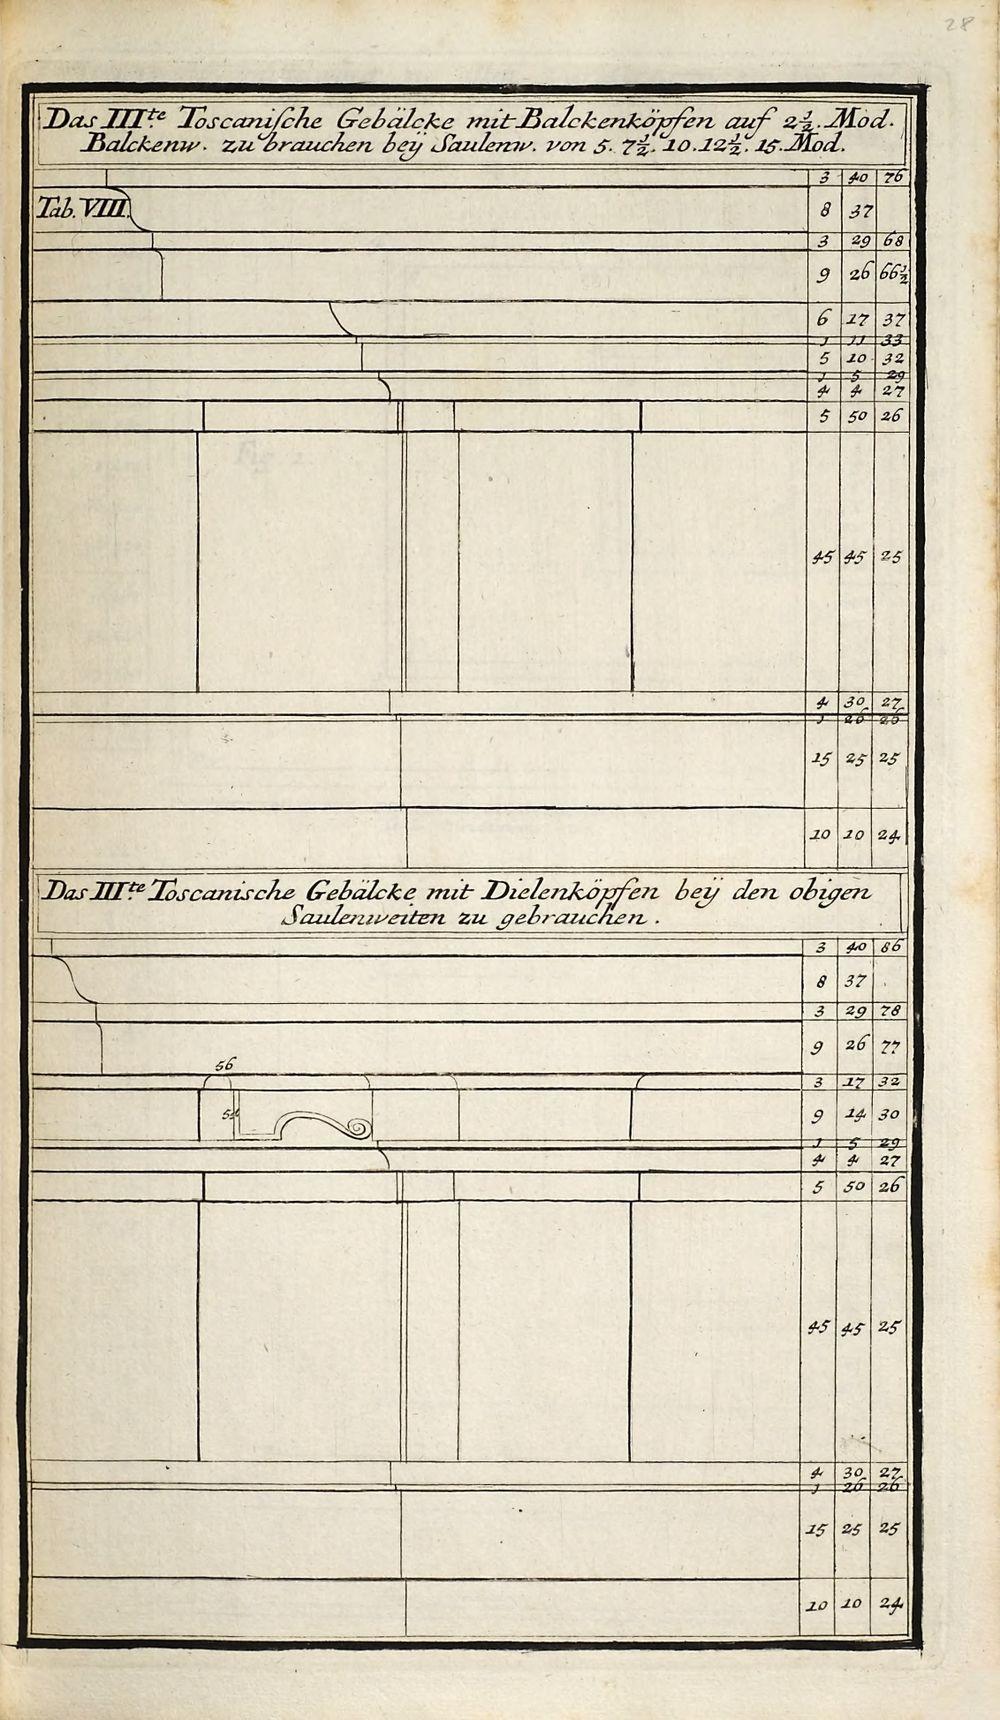 28
Das III.te Toscanische Gebälcke mit Balckenköpfen auf 2½. Mod.
Balckenw. zu brauchen beÿ Saulenw. von 5. 7½. 10. 12½. 15. Mod.
3 40 76
Tab. VIII.
8 37
3 29 68
9 26 66½
6 17 37
1 11 33
5 10 32
1 5 29
4 4 27
5 50 26
45 45 25
4 30 27
1 26 26
15 25 25
10 10 24
Das III.te Toscanische Gebälcke mit Dielenköpfen beÿ den obigen
Saulenweiten zu gebrauchen.
3 40 86
8 37
3 29 78
9 26 77
56
3 17 32
9 14 30
1 5 29
4 4 27
5 50 26
45 45 25
4 30 27
1 26 26
15 25 25
10 10 24